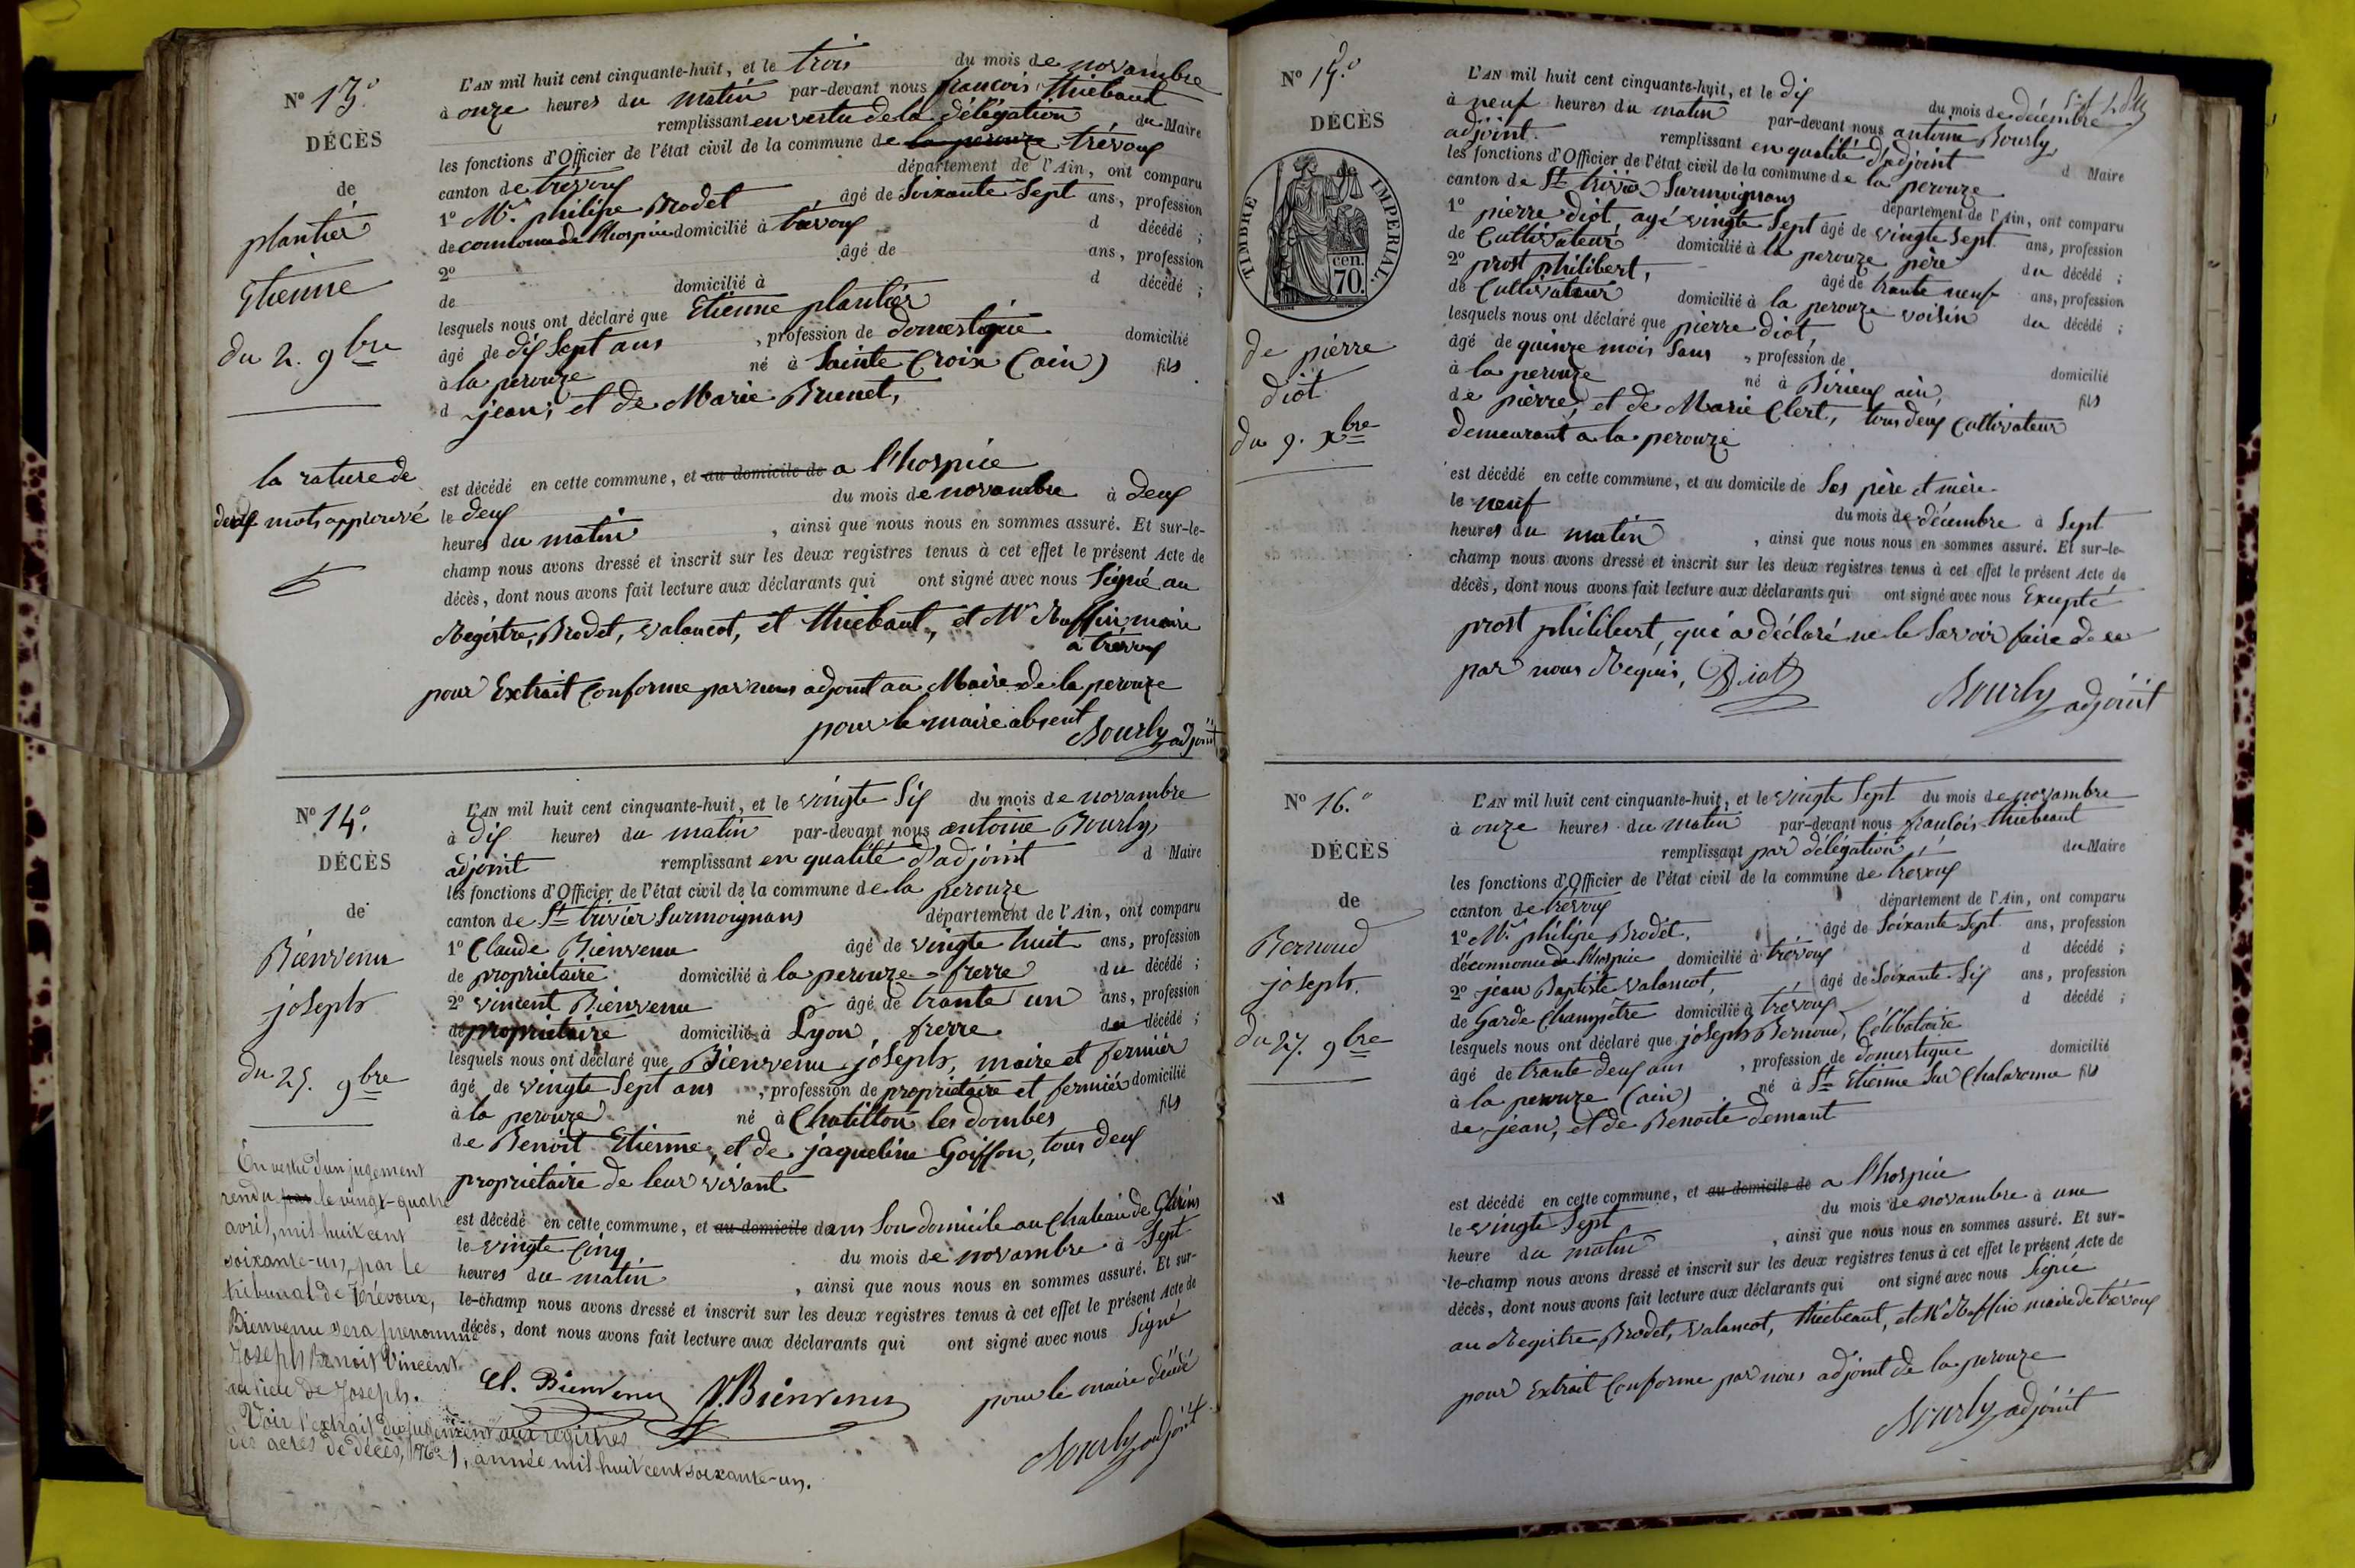 N° 13.°
DÉCÈS
de
plantier
Etienne
du 2. 9bre
la rature de
deux mots approuvé
L'AN mil huit cent cinquante-huit, et le trois du mois de novambre
à onze heures du matin par-devant nous francois thiebaud
remplissant en vertu de la délégation du Maire
les fonctions d'Officier de l'état civil de la commune de la perouze trévoux
canton de trévoux département de l'Ain, ont comparu
1° Mr. philipe Brodet âgé de Soixante Sept ans, profession
de connome de l'hospice domicilié à trévoux d décédé ;
2° âgé de ans, profession
de domicilié à d décédé ;
lesquels nous ont déclaré que Etienne plantier
âgé de dix Sept ans , profession de domestique domicilié
à la perouze né à Sainte Croix (ain) fils
d jean, et de Marie Brunet,
est décédé en cette commune, et au domicile de a l'hospice
le deux du mois de novambre à deux
heures du matin , ainsi que nous nous en sommes assuré. Et sur-le-
champ nous avons dressé et inscrit sur les deux registres tenus à cet effet le présent Acte de
décès, dont nous avons fait lecture aux déclarants qui ont signé avec nous Signé au
Registre, Brodet, valancot, et thiebaut, et Mr Ruffin maire
a trévoux
pour Extrait Conforme par nous adjoint au Maire de la perouze
pour le maire absent Bourly adjoint
N° 14.°
DÉCÈS
de
Bienvenu
joseph
du 25. 9bre
En vertu d'un jugement
rendu par le vingt-quatre
avril, mil huit cent
soixante-un, par le
tribunal de Trévoux,
Bienvenu sera prénommé
Joseph Benoit Vincent
au lieu de Joseph.
Voir l'extrait du jugement aux registres
des actes de décès, N° 1, année mil huit cent soixante-un.
L'AN mil huit cent cinquante-huit, et le vingte Six du mois de novambre
à dix heures du matin par-devant nous antoine Bourly
adjoint remplissant en qualité d'adjoint d Maire
les fonctions d'Officier de l'état civil de la commune de la perouze
canton de St trivier Surmoignans département de l'Ain, ont comparu
1° Claude Bienvenu âgé de vingte huit ans, profession
de propriétaire domicilié à la perouze frerre du décédé ;
2° vincent Bienvenu âgé de trante un ans, profession
de propriétaire domicilié à Lyon frerre du décédé ;
lesquels nous ont déclaré que Bienvenu joseph, maire et fermier
âgé de vingte Sept ans , profession de propriétaire et fermier domicilié
à la perouze né à Chatillon les dombes fils
de Benoit Etienne, et de jaqueline Goiffon, tous deux
propriétaire de leur vivant
est décédé en cette commune, et au domicile dans Son domicile au Chateau de Glarins
le vingte Cinq du mois de novambre à Sept
heures du matin , ainsi que nous nous en sommes assuré. Et sur-
le-champ nous avons dressé et inscrit sur les deux registres tenus à cet effet le présent Acte de
décès, dont nous avons fait lecture aux déclarants qui ont signé avec nous Signé
Cl. Bienvenu V. Bienvenu pour le maire décédé
Bourly adjoint
N° 15.°
DÉCÈS
TIMBRE IMPERIAL
cen.
70.
de pierre
diot
du 9. Xbre
L'AN mil huit cent cinquante-huit, et le dix du mois de décembre
à neuf heures du matin par-devant nous antoine Bourly
adjoint remplissant en qualité d'adjoint d Maire
les fonctions d'Officier de l'état civil de la commune de la perouze
canton de St trivier Surmoignans département de l'Ain, ont comparu
1° pierre diot, agé vingte Sept âgé de vingte Sept ans, profession
de Cultivateur domicilié à la perouze pere du décédé ;
2° prost philibert, âgé de trante neuf ans, profession
de Cultivateur domicilié à la perouze voisin du décédé ;
lesquels nous ont déclaré que pierre diot,
âgé de quinze mois Sans , profession de domicilié
à la perouze né à Birieux ain, fils
de pierre, et de Marie Clert, tous deux Cultivateur
demeurant a la perouze
est décédé en cette commune, et au domicile de Ses père et mère
le neuf du mois de décembre à Sept
heures du matin , ainsi que nous nous en sommes assuré. Et sur-le-
champ nous avons dressé et inscrit sur les deux registres tenus à cet effet le présent Acte de
décès, dont nous avons fait lecture aux déclarants qui ont signé avec nous Excepté
prost philibert, qui a déclaré ne le Savoir faire de ce
par nous Requis, Diot
Bourly adjoint
N° 16.°
DÉCÈS
de
Bernoud
joseph.
du 27. 9bre
L'AN mil huit cent cinquante-huit, et le vingte Sept du mois de novambre
à onze heures du matin par-devant nous francois thiebeaut
remplissant par délégation du Maire
les fonctions d'Officier de l'état civil de la commune de trévoux
canton de trévoux département de l'Ain, ont comparu
1° Mr. philipe Brodet, âgé de Soixante Sept ans, profession
d'éconnome de l'hospice domicilié à trévoux d décédé ;
2° jean Baptiste valancot, âgé de Soixante Six ans, profession
de Garde Champêtre domicilié à trévoux d décédé ;
lesquels nous ont déclaré que joseph Bernoud, Célibataire
âgé de trante deux ans , profession de domestique domicilié
à la perouze (ain) né à St Etienne Sur Chalaronne fils
de jean, et de Benoite demant
est décédé en cette commune, et au domicile de a l'hospice
le vingte Sept du mois de novambre à une
heure du matin , ainsi que nous nous en sommes assuré. Et sur-
le-champ nous avons dressé et inscrit sur les deux registres tenus à cet effet le présent Acte de
décès, dont nous avons fait lecture aux déclarants qui ont signé avec nous Signé
au Registre Brodet, valancot, thiebeaut, et Mr Ruffin maire de trévoux
pour Extrait Conforme par nous adjoint de la perouze
Bourly adjoint